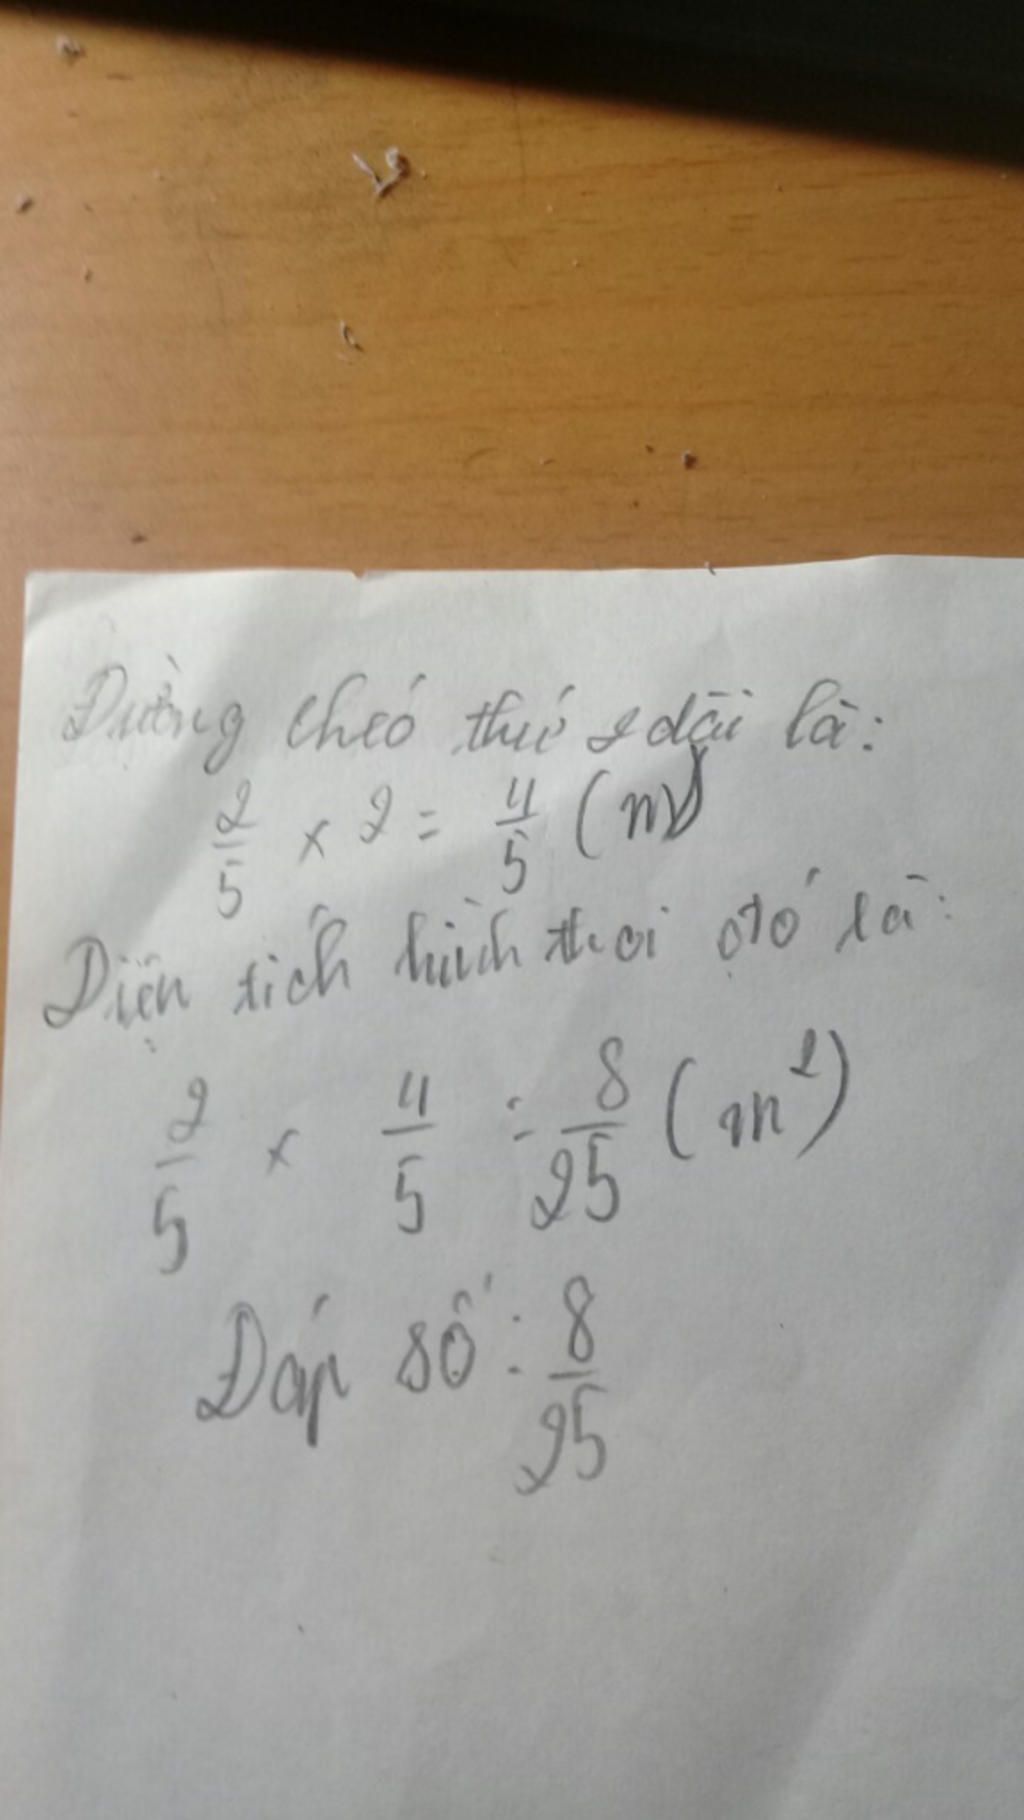 Đường chéo thứ 2 dài là:
2/5 × 2 = 4/5 (m)
Diện tích hình thoi đó là:
2/5 × 4/5 = 8/25 (m²)
Đáp số: 8/25